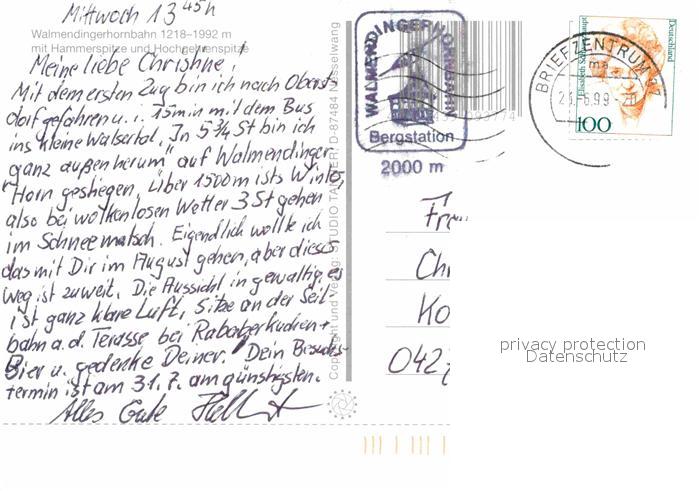 Mittwoch 13 45h
Walmendingerhornbahn 1218–1992 m
mit Hammerspitze und Hochgehrenspitze
Meine liebe Christine!
Mit dem ersten Zug bin ich nach Oberst-
dorf gefahren u. i. 15min mit dem Bus
ins kleine Walsertal. In 5 3/4 St bin ich
"ganz außen herum" auf Walmendinger
Horn gestiegen, über 1500m ists Winter,
also bei wolkenlosen Wetter 3 St gehen
im Schneematsch. Eigendlich wollte ich
das mit Dir im August gehen, aber dieser
Weg ist zu weit. Die Aussicht in gewaltig es
ist ganz klare Luft, Sitze an der Seil
bahn a.d. Terasse bei Rababerkuchen +
Bier u. gedenke Deiner. Dein Besuchs-
termin ist am 31.7. am günstigsten.
Alles Gute
Copyright und Verlag: STUDIO D-87484 Nesselwang
WALMENDINGERHORNBAHN
Bergstation
2000 m
BRIEFZENTRUM
Deutschland
100
Fra
Chr
Ko
042
privacy protection
Datenschutz